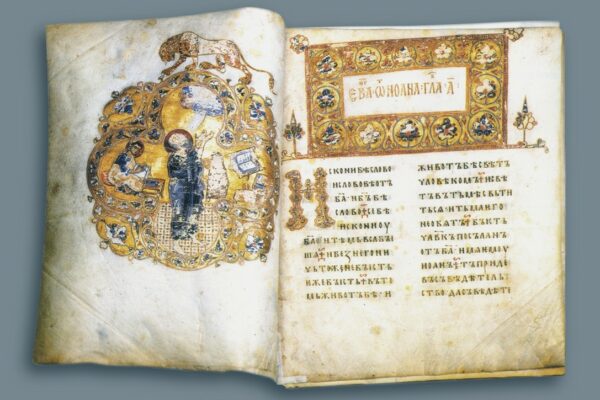 ЕВА Ѿ ИОАНА ГЛА А
ИСКОНИБѢСЛОВО
ИСЛОВОБѢОТ
БАИБЪБѢ
СЛОВОСЕБѢ
ИСКОНИОУ
БАИТѢМЬВЬСАБЫ
ШАИБЕЗНЕГОНИ
ЧЬТОЖЕНЕБЫСТЬ
ѤЖЕБЫСТЬВЪТО
МЬЖИВОТЪБѢИ
ЖИВОТЪБѢСВѢТЪ
ЧЛОВѢКОМЪИСВѢ
ТЪВЪТЬМѢСВЬТИ
ТЬСѦИТЬМАѤГО
НЕОБѦТЪБЫСТЬ
ЧЛВКЪПОСЪЛАНЪ
ОТЪБАИМѦѤМОУ
ИОАНЪТЪПРИДЕ
ВЪСЪВѢДѢТЕЛЬ
СТВОДАСЪВѢДѢТЕ